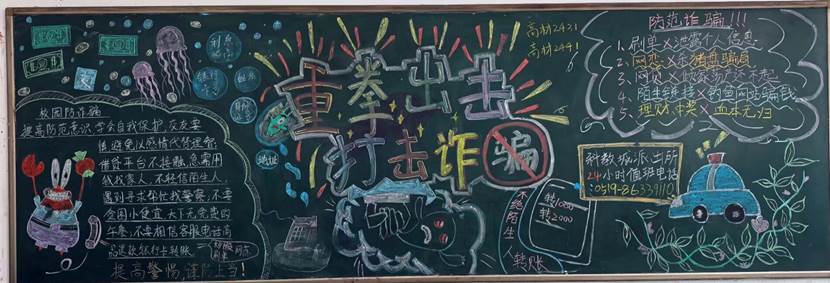 高材2431
高材2441
重拳出击
打击诈骗
校园防诈骗
提高防范意识 学会自我保护 交友要
谨慎避免以感情代替理智
借贷平台不接触,急需用
钱找家人,不轻信陌生人,
遇到寻求帮忙找警察,不要
贪图小便宜 天下无免费的
午餐,不要相信客服电话高
提高警惕,谨防上当!
地址
不给陌生人
转账
转1000
转2000
防范诈骗!!!
1、刷单X泄露个人信息
2、网恋X杀猪盘骗钱
3、网贷X
4、陌生链接X钓鱼网站骗钱
5、理财中奖X血本无归
科教城派出所
24小时值班电话
:0519-86339110